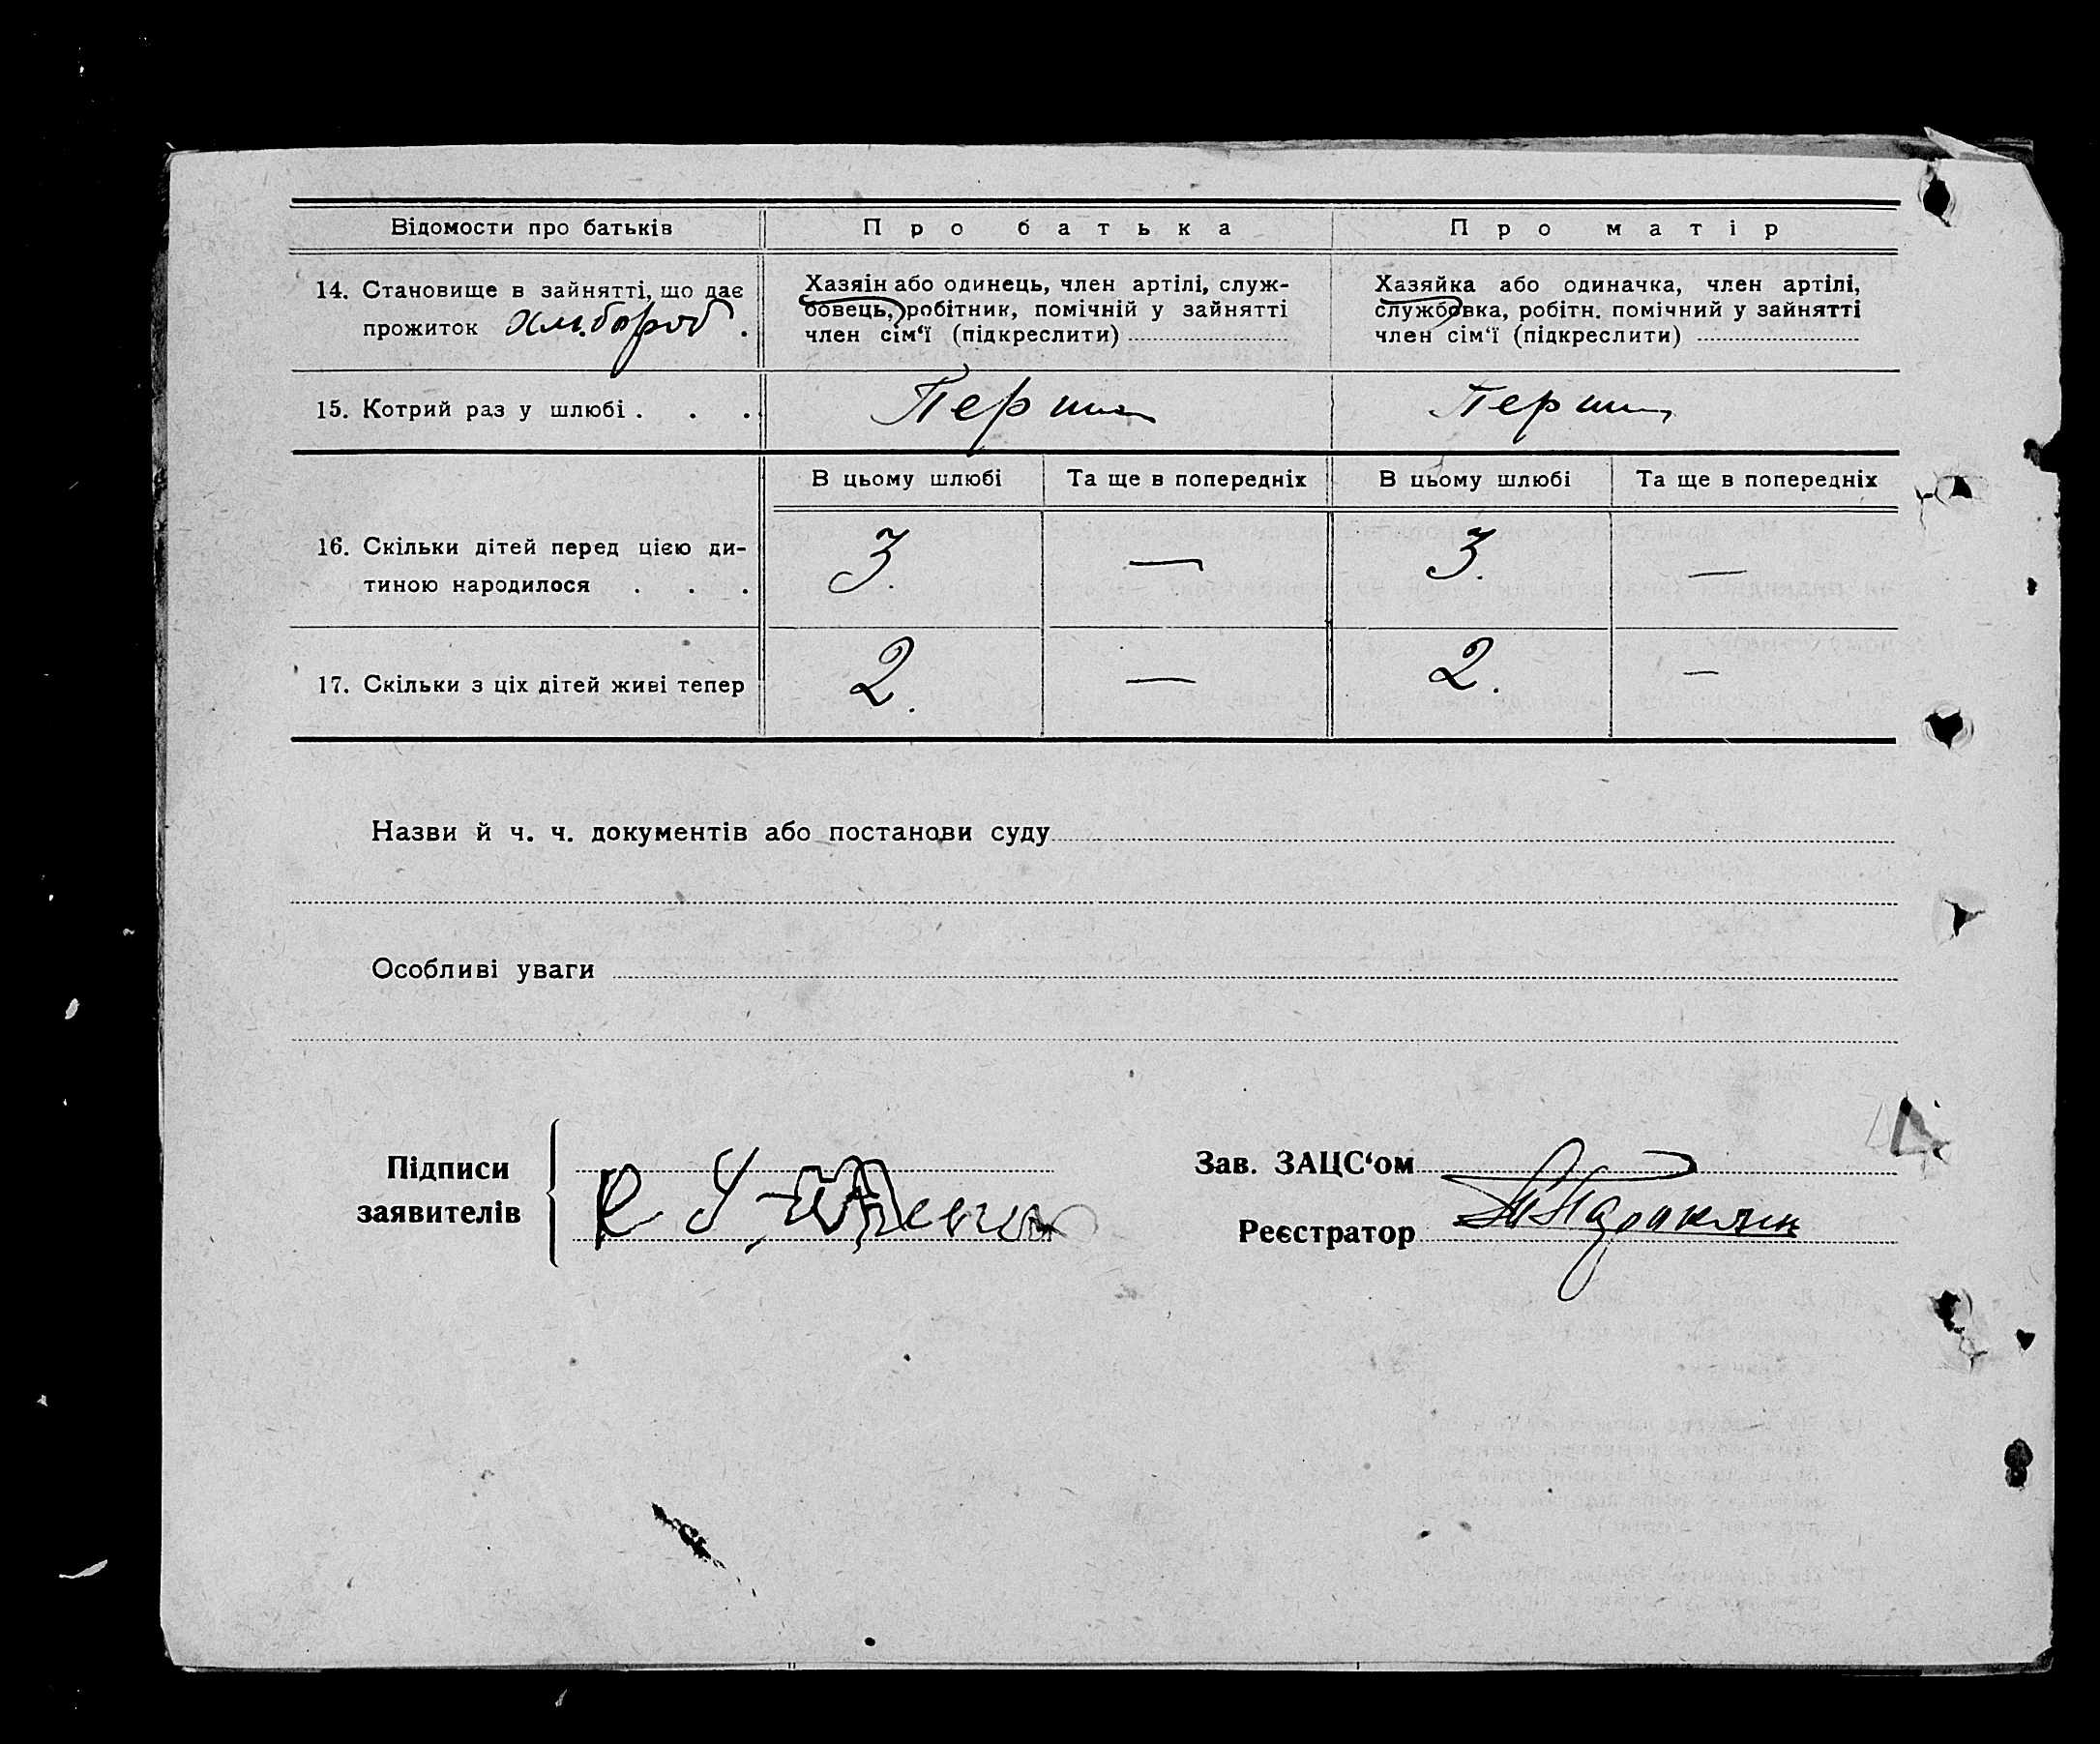 Відомости про батьків
Про батька
Про матір
14. Становище в зайнятті, що дає
прожиток
Хазяін або одинець, член артілі, служ-
бовець, робітник, помічній у зайнятті
член сім‘ї (підкреслити)
Хазяйка або одиначка, член артілі,
службовка, робітн. помічний у зайнятті
член сім‘ї (підкреслити)
15. Котрий раз у шлюбі . . .
В цьому шлюбі
Та ще в попередніх
В цьому шлюбі
Та ще в попередніх
16. Скільки дітей перед цією ди-
тиною народилося . . .
3.
—
3.
—
17. Скільки з ціх дітей живі тепер
2.
—
2.
—
Назви й ч. ч. документів або постанови суду
Особливі уваги
Підписи
заявителів
Зав. ЗАЦС‘ом
Реєстратор